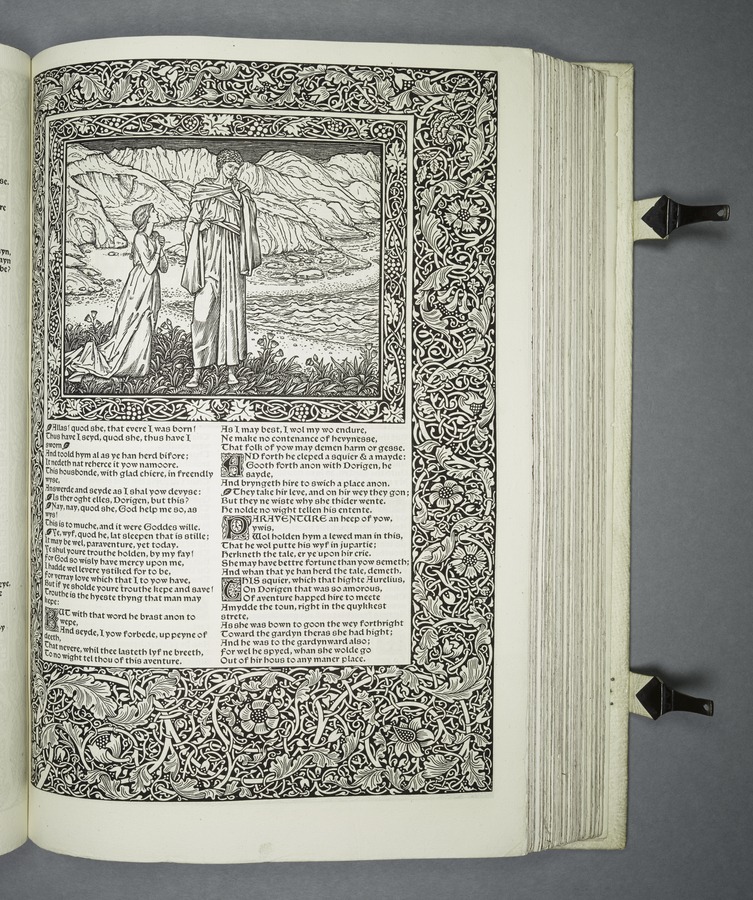 se.
re
yn,
ayn
be?
eye.
y
Allas! quod she, that evere I was born!
Thus have I seyd, quod she, thus have I
sworn,
And toold hym al as ye han herd bifore;
It nedeth nat reherce it yow namoore.
This housbonde, with glad chiere, in freendly
wyse,
Answerde and seyde as I shal yow devyse:
Is ther oght elles, Dorigen, but this?
Nay, nay, quod she, God help me so, as
wys!
This is to muche, and it were Goddes wille.
Ye, wyf, quod he, lat sleepen that is stille;
It may be wel, paraventure, yet today.
Ye shul youre trouthe holden, by my fay!
For God so wisly have mercy upon me,
I hadde wel levere ystiked for to be,
For verray love which that I to yow have,
But if ye sholde youre trouthe kepe and save!
Trouthe is the hyeste thyng that man may
kepe:
BUT with that word he brast anon to
wepe,
And seyde, I yow forbede, up peyne of
deeth,
That nevere, whil thee lasteth lyf ne breeth,
To no wight tel thou of this aventure.
As I may best, I wol my wo endure,
Ne make no contenance of hevynesse,
That folk of yow may demen harm or gesse.
AND forth he cleped a squier & a mayde:
Gooth forth anon with Dorigen, he
sayde,
And bryngeth hire to swich a place anon.
They take hir leve, and on hir wey they gon;
But they ne wiste why she thider wente.
He nolde no wight tellen his entente.
PARAVENTURE an heep of yow,
ywis,
Wol holden hym a lewed man in this,
That he wol putte his wyf in jupartie;
Herkneth the tale, er ye upon hir crie.
She may have bettre fortune than yow semeth;
And whan that ye han herd the tale, demeth.
THIS squier, which that highte Aurelius,
On Dorigen that was so amorous,
Of aventure happed hire to meete
Amydde the toun, right in the quykkest
strete,
As she was bown to goon the wey forthright
Toward the gardyn theras she had hight;
And he was to the gardynward also;
For wel he spyed, whan she wolde go
Out of hir hous to any maner place.